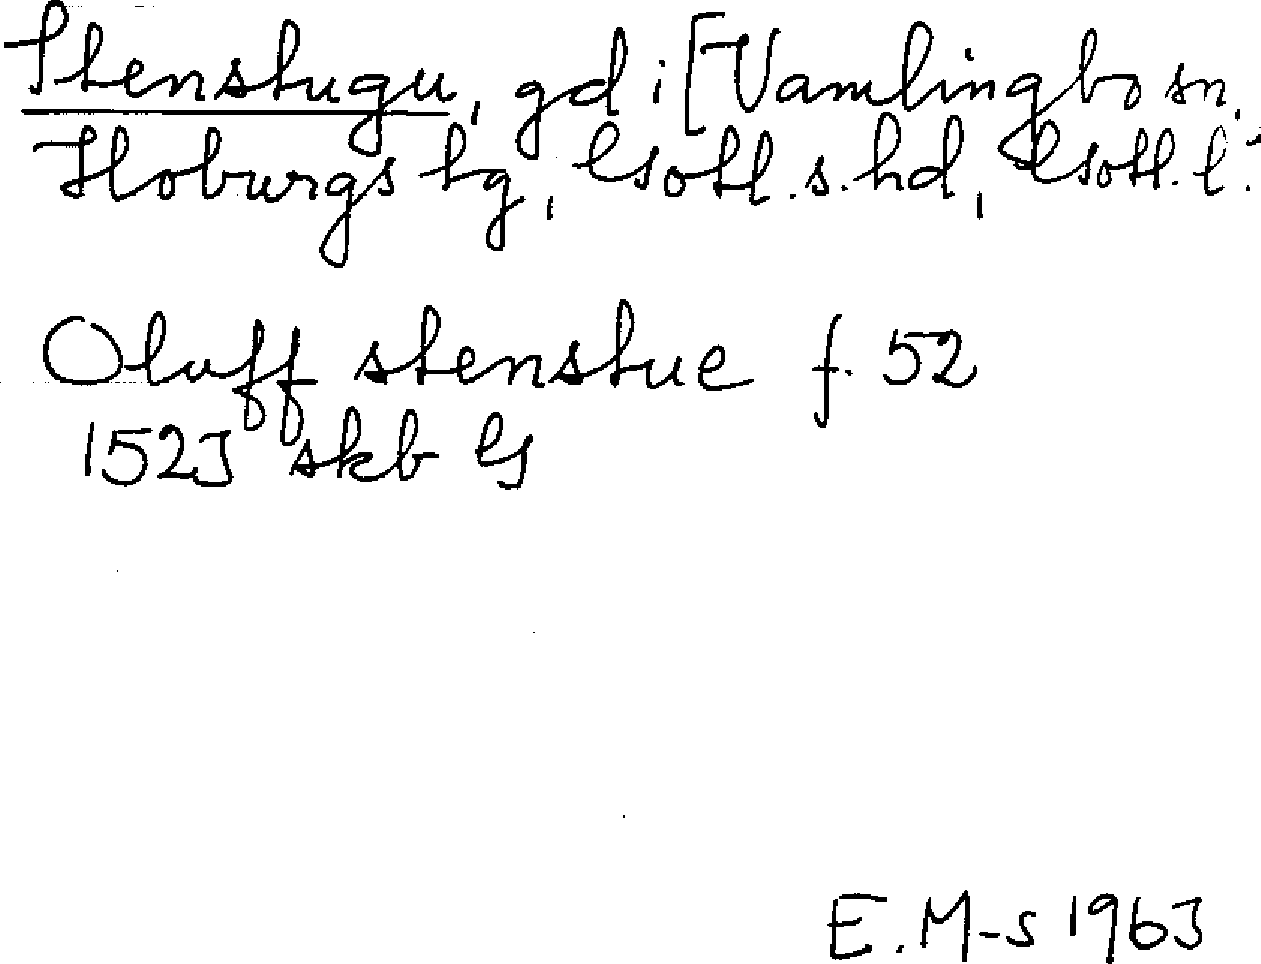 Stenstugu, gd i [Vamlingbo sn,
Hoburgs tg, Gotl. s. hd, Gotl. l.
Oluff stenstue f. 52
1523 skb G
E. M-s 1963